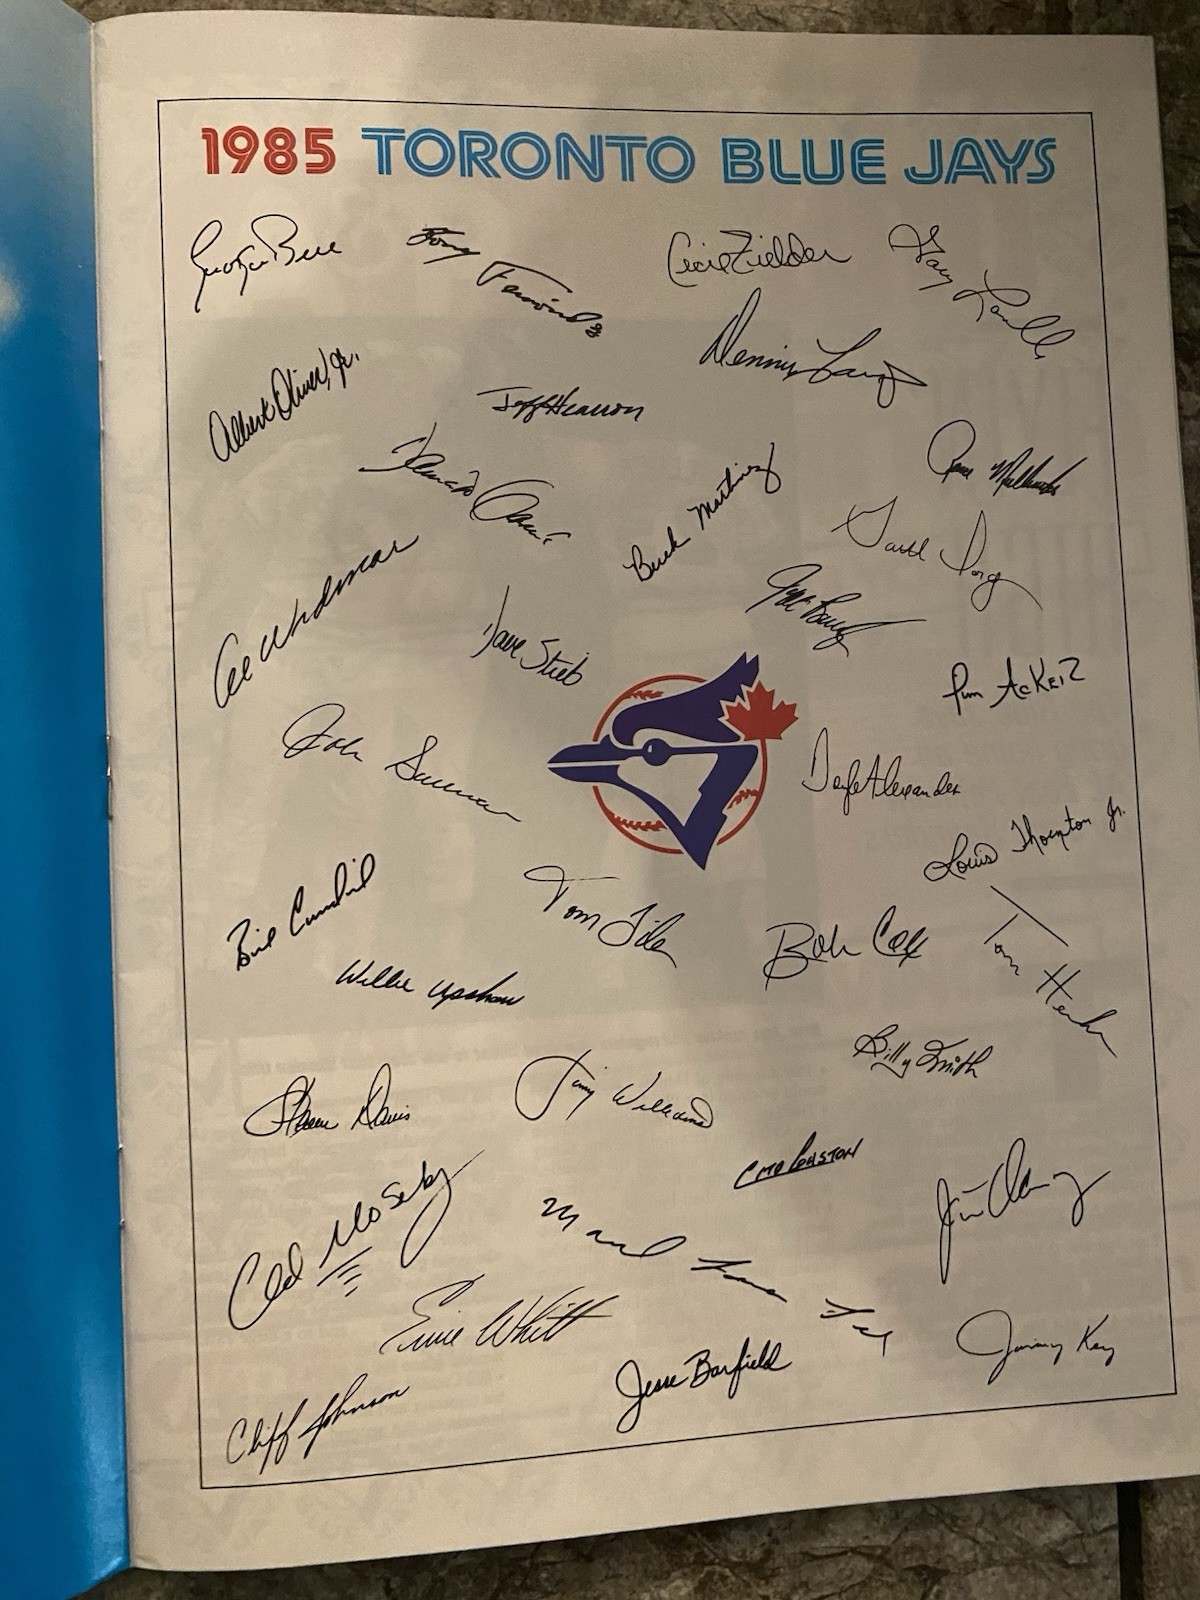 1985 TORONTO BLUE JAYS
George Bell
Tony Fernandez
Cecil Fielder
Gary Lavelle
Dennis Lamp
Albert Oliver, Jr.
Jeff Hearron
Rance Mulliniks
Buck Martinez
Garth Iorg
Al Widmar
Dave Stieb
Jeff Burroughs
Jim Acker
John Sullivan
Doyle Alexander
Louis Thornton Jr.
Bill Caudill
Tom Filer
Bob Cox
Tom Henke
Willie Upshaw
Billy Smith
Steve Davis
Jimy Williams
Cito Gaston
Jim Clancy
Lloyd Moseby
Manuel Lee
Ernie Whitt
Jesse Barfield
Jimmy Key
Cliff Johnson